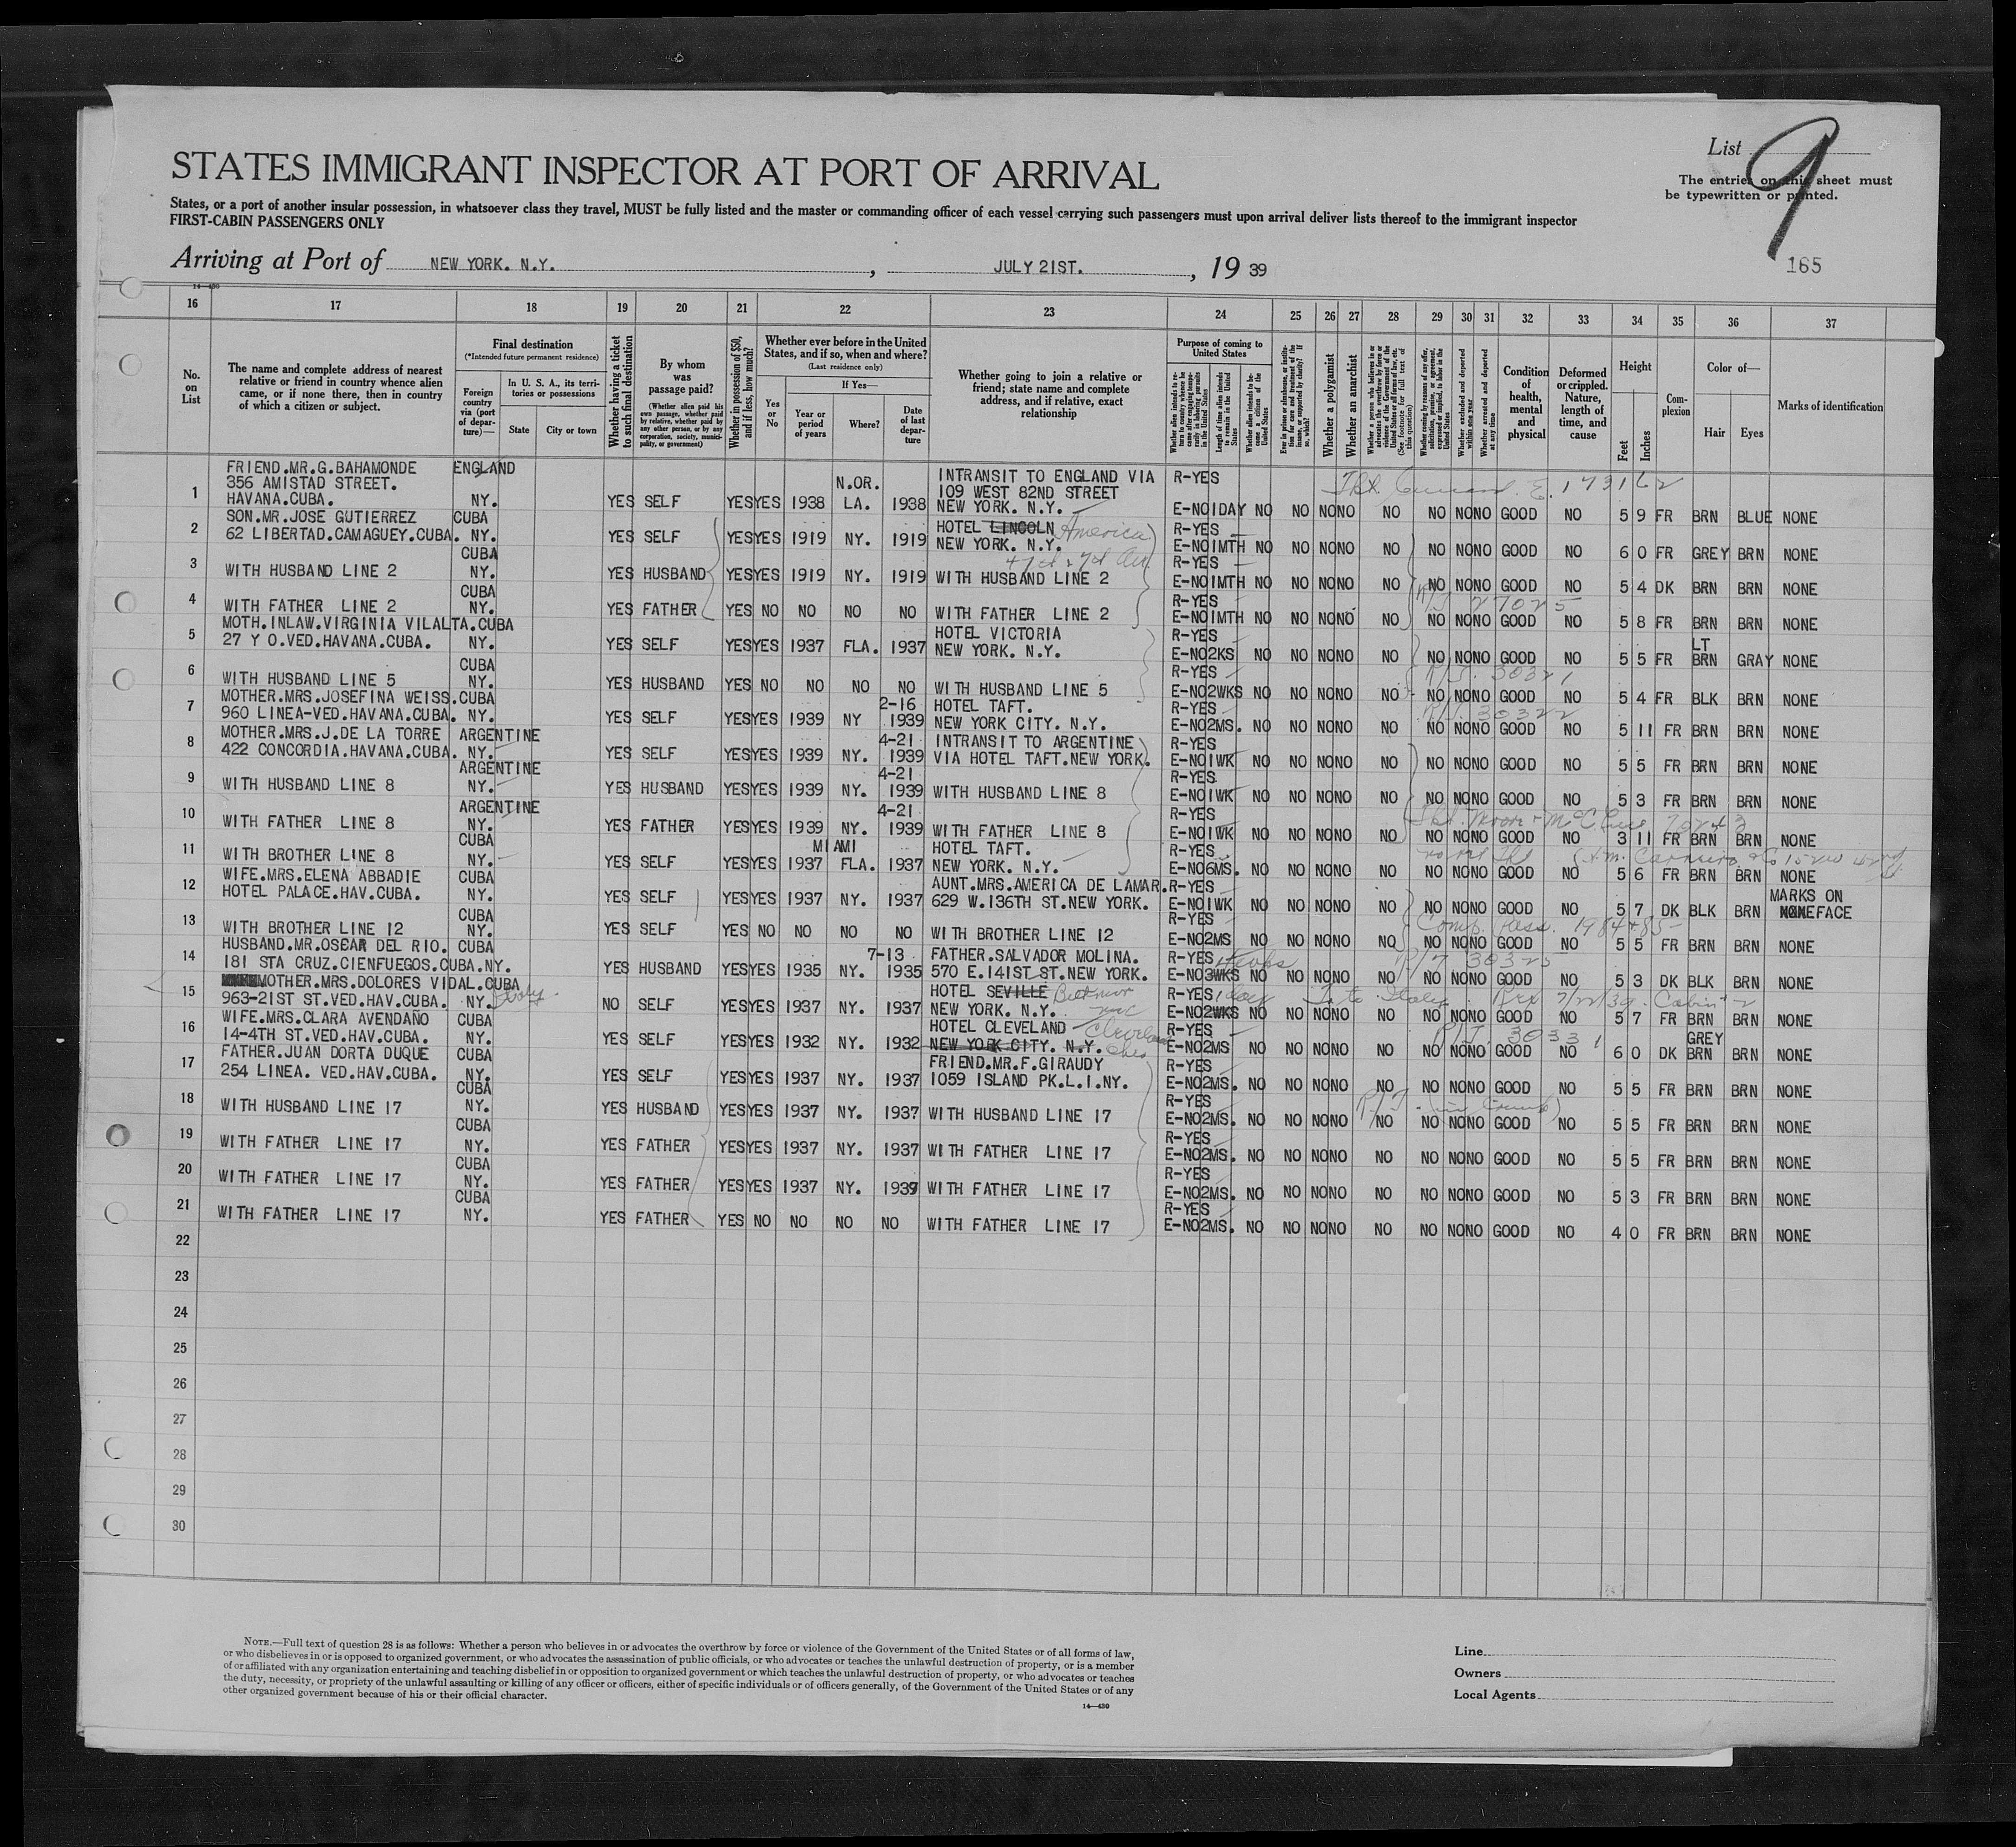 List 9
STATES IMMIGRANT INSPECTOR AT PORT OF ARRIVAL
The entries on this sheet must
be typewritten or printed.
States, or a port of another insular possession, in whatsoever class they travel, MUST be fully listed and the master or commanding officer of each vessel carrying such passengers must upon arrival deliver lists thereof to the immigrant inspector
FIRST-CABIN PASSENGERS ONLY
Arriving at Port of NEW YORK. N.Y. , JULY 21ST. , 19 39
165
14-430
16 17 18 19 20 21 22 23 24 25 26 27 28 29 30 31 32 33 34 35 36 37
No. on List
The name and complete address of nearest relative or friend in country whence alien came, or if none there, then in country of which a citizen or subject.
Final destination
(*Intended future permanent residence)
Foreign country via (port of departure)—
In U. S. A., its territories or possessions
State
City or town
Whether having a ticket to such final destination
By whom was passage paid?
(Whether alien paid his own passage, whether paid by relative, whether paid by any other person, or by any corporation, society, municipality, or government)
Whether in possession of $50, and if less, how much?
Whether ever before in the United States, and if so, when and where?
(Last residence only)
Yes or No
If Yes—
Year or period of years
Where?
Date of last departure
Whether going to join a relative or friend; state name and complete address, and if relative, exact relationship
Purpose of coming to United States
Whether alien intends to return to country whence he came after engaging temporarily in laboring pursuits in the United States
Length of time alien intends to remain in the United States
Whether alien intends to become a citizen of the United States
Ever in prison or almshouse, or institution for care and treatment of the insane, or supported by charity? If so, which?
Whether a polygamist
Whether an anarchist
Whether a person who believes in or advocates the overthrow by force or violence of the Government of the United States or all forms of law, etc. (See footnote for full text of this question)
Whether coming by reasons of any offer, solicitation, promise, or agreement, expressed or implied, to labor in the United States
Whether excluded and deported within one year
Whether arrested and deported at any time
Condition of health, mental and physical
Deformed or crippled. Nature, length of time, and cause
Height
Feet
Inches
Complexion
Color of—
Hair
Eyes
Marks of identification
FRIEND.MR.G.BAHAMONDE ENGLAND INTRANSIT TO ENGLAND VIA R-YES
356 AMISTAD STREET. N.OR. 109 WEST 82ND STREET
1 HAVANA.CUBA. NY. YES SELF YES YES 1938 LA. 1938 NEW YORK. N.Y. E-NO 1DAY NO NO NO NO NO NO NO NO GOOD NO 5 9 FR BRN BLUE NONE
SON.MR.JOSE GUTIERREZ CUBA HOTEL LINCOLN America R-YES
2 62 LIBERTAD.CAMAGUEY.CUBA. NY. YES SELF YES YES 1919 NY. 1919 NEW YORK. N.Y. E-NO 1MTH NO NO NO NO NO NO NO NO GOOD NO 6 0 FR GREY BRN NONE
CUBA R-YES
3 WITH HUSBAND LINE 2 NY. YES HUSBAND YES YES 1919 NY. 1919 WITH HUSBAND LINE 2 E-NO 1MTH NO NO NO NO NO NO NO NO GOOD NO 5 4 DK BRN BRN NONE
CUBA R-YES R/T 27025
4 WITH FATHER LINE 2 NY. YES FATHER YES NO NO NO NO WITH FATHER LINE 2 E-NO 1MTH NO NO NO NO NO NO NO NO GOOD NO 5 8 FR BRN BRN NONE
MOTH.INLAW.VIRGINIA VILALTA.CUBA HOTEL VICTORIA R-YES LT
5 27 Y O.VED.HAVANA.CUBA. NY. YES SELF YES YES 1937 FLA. 1937 NEW YORK. N.Y. E-NO 2KS NO NO NO NO NO NO NO NO GOOD NO 5 5 FR BRN GRAY NONE
CUBA R-YES R/T. 30321
6 WITH HUSBAND LINE 5 NY. YES HUSBAND YES NO NO NO NO WITH HUSBAND LINE 5 E-NO 2WKS NO NO NO NO NO NO NO NO GOOD NO 5 4 FR BLK BRN NONE
MOTHER.MRS.JOSEFINA WEISS.CUBA 2-16 HOTEL TAFT. R-YES R/T. 30322
7 960 LINEA-VED.HAVANA.CUBA. NY. YES SELF YES YES 1939 NY 1939 NEW YORK CITY. N.Y. E-NO 2MS. NO NO NO NO NO NO NO NO GOOD NO 5 11 FR BRN BRN NONE
MOTHER.MRS.J.DE LA TORRE ARGENTINE 4-21 INTRANSIT TO ARGENTINE R-YES
8 422 CONCORDIA.HAVANA.CUBA. NY. YES SELF YES YES 1939 NY. 1939 VIA HOTEL TAFT.NEW YORK. E-NO 1WK NO NO NO NO NO NO NO NO GOOD NO 5 5 FR BRN BRN NONE
ARGENTINE 4-21 R-YES
9 WITH HUSBAND LINE 8 NY. YES HUSBAND YES YES 1939 NY. 1939 WITH HUSBAND LINE 8 E-NO 1WK NO NO NO NO NO NO NO NO GOOD NO 5 3 FR BRN BRN NONE
ARGENTINE 4-21 R-YES
10 WITH FATHER LINE 8 NY. YES FATHER YES YES 1939 NY. 1939 WITH FATHER LINE 8 E-NO 1WK NO NO NO NO NO NO NO NO GOOD NO 3 11 FR BRN BRN NONE
CUBA MIAMI HOTEL TAFT. R-YES
11 WITH BROTHER LINE 8 NY. YES SELF YES YES 1937 FLA. 1937 NEW YORK. N.Y. E-NO 6MS. NO NO NO NO NO NO NO NO GOOD NO 5 6 FR BRN BRN NONE
WIFE.MRS.ELENA ABBADIE CUBA AUNT.MRS.AMERICA DE LAMAR. R-YES MARKS ON
12 HOTEL PALACE.HAV.CUBA. NY. YES SELF YES YES 1937 NY. 1937 629 W.136TH ST.NEW YORK. E-NO 1WK NO NO NO NO NO NO NO NO GOOD NO 5 7 DK BLK BRN FACE
CUBA R-YES
13 WITH BROTHER LINE 12 NY. YES SELF YES NO NO NO NO WITH BROTHER LINE 12 E-NO 2MS NO NO NO NO NO NO NO NO GOOD NO 5 5 FR BRN BRN NONE
HUSBAND.MR.OSCAR DEL RIO. CUBA 7-13 FATHER.SALVADOR MOLINA. R-YES R/T 30325
14 181 STA CRUZ.CIENFUEGOS.CUBA.NY. YES HUSBAND YES YES 1935 NY. 1935 570 E.141ST ST.NEW YORK. E-NO 3WKS NO NO NO NO NO NO NO NO GOOD NO 5 3 DK BLK BRN NONE
MOTHER.MRS.DOLORES VIDAL.CUBA HOTEL SEVILLE R-YES 1 day
15 963-21ST ST.VED.HAV.CUBA. NY. Italy NO SELF YES YES 1937 NY. 1937 NEW YORK. N.Y. E-NO 2WKS NO NO NO NO NO NO NO NO GOOD NO 5 7 FR BRN BRN NONE
WIFE.MRS.CLARA AVENDAÑO CUBA HOTEL CLEVELAND R-YES R/T. 30331 GREY
16 14-4TH ST.VED.HAV.CUBA. NY. YES SELF YES YES 1932 NY. 1932 NEW YORK CITY. N.Y. E-NO 2MS NO NO NO NO NO NO NO NO GOOD NO 6 0 DK BRN BRN NONE
FATHER.JUAN DORTA DUQUE CUBA FRIEND.MR.F.GIRAUDY R-YES
17 254 LINEA. VED.HAV.CUBA. NY. YES SELF YES YES 1937 NY. 1937 1059 ISLAND PK.L.I.NY. E-NO 2MS. NO NO NO NO NO NO NO NO GOOD NO 5 5 FR BRN BRN NONE
CUBA R-YES
18 WITH HUSBAND LINE 17 NY. YES HUSBAND YES YES 1937 NY. 1937 WITH HUSBAND LINE 17 E-NO 2MS. NO NO NO NO NO NO NO NO GOOD NO 5 5 FR BRN BRN NONE
CUBA R-YES
19 WITH FATHER LINE 17 NY. YES FATHER YES YES 1937 NY. 1937 WITH FATHER LINE 17 E-NO 2MS. NO NO NO NO NO NO NO NO GOOD NO 5 5 FR BRN BRN NONE
CUBA R-YES
20 WITH FATHER LINE 17 NY. YES FATHER YES YES 1937 NY. 1937 WITH FATHER LINE 17 E-NO 2MS. NO NO NO NO NO NO NO NO GOOD NO 5 3 FR BRN BRN NONE
CUBA R-YES
21 WITH FATHER LINE 17 NY. YES FATHER YES NO NO NO NO WITH FATHER LINE 17 E-NO 2MS. NO NO NO NO NO NO NO NO GOOD NO 4 0 FR BRN BRN NONE
22
23
24
25
26
27
28
29
30
NOTE.—Full text of question 28 is as follows: Whether a person who believes in or advocates the overthrow by force or violence of the Government of the United States or of all forms of law,
or who disbelieves in or is opposed to organized government, or who advocates the assassination of public officials, or who advocates or teaches the unlawful destruction of property, or is a member
of or affiliated with any organization entertaining and teaching disbelief in or opposition to organized government or which teaches the unlawful destruction of property, or who advocates or teaches
the duty, necessity, or propriety of the unlawful assaulting or killing of any officer or officers, either of specific individuals or of officers generally, of the Government of the United States or of any
other organized government because of his or their official character.
14-430
Line
Owners
Local Agents